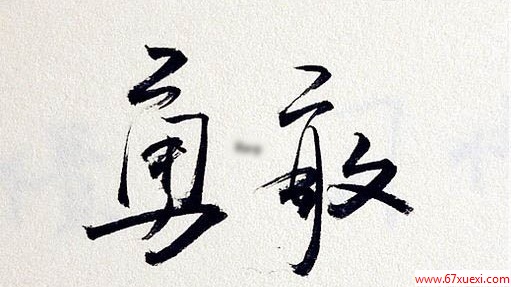 勇敢
www.67xuexi.com